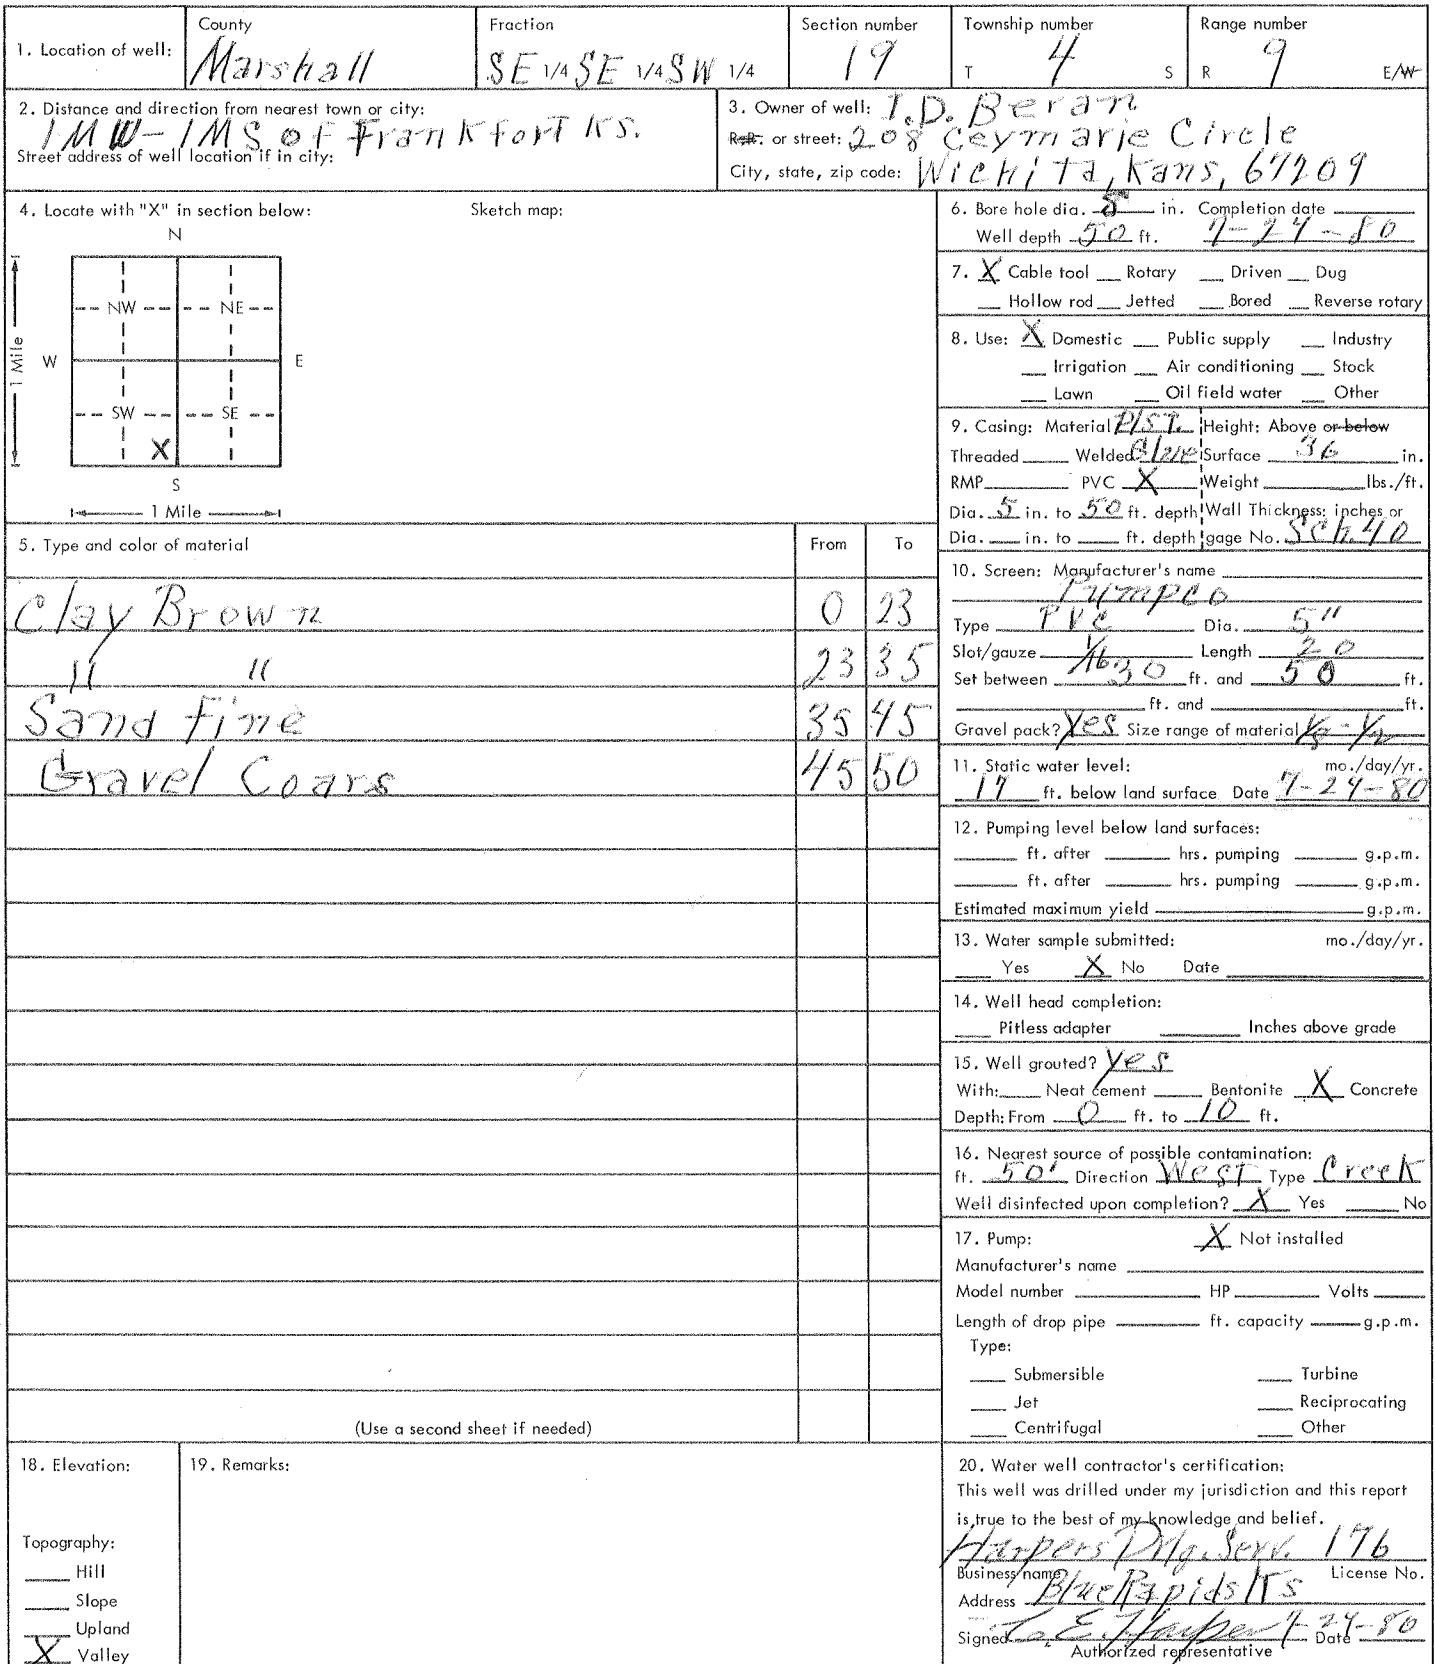 County Fraction Section number Township number Range number
1. Location of well: Marshall SE 1/4 SE 1/4 SW 1/4 19 T 4 S R 9 E/W
2. Distance and direction from nearest town or city:
1MW-1MS of Frankfort Ks.
Street address of well location if in city:
3. Owner of well: I.D. Beran
R.R. or street: 208 Ceymarie Circle
City, state, zip code: Wichita, Kans, 67209
4. Locate with "X" in section below: Sketch map:
N
NW NE
W E
1 Mile
SW SE
X
S
1 Mile
5. Type and color of material From To
Clay Brown 0 23
" " 23 35
Sand Fine 35 45
Gravel Coars 45 50
(Use a second sheet if needed)
6. Bore hole dia. in. Completion date
Well depth 50 ft. 7-24-80
7. X Cable tool Rotary Driven Dug
Hollow rod Jetted Bored Reverse rotary
8. Use: X Domestic Public supply Industry
Irrigation Air conditioning Stock
Lawn Oil field water Other
9. Casing: Material Plst. Height: Above or below
Threaded Welded Glue Surface 36 in.
RMP PVC X Weight lbs./ft.
Dia. 5 in. to 50 ft. depth Wall Thickness: inches or
Dia. in. to ft. depth gage No. Sch.40
10. Screen: Manufacturer's name
Pumpco
Type PVC Dia. 5"
Slot/gauze 1/16 Length 20
Set between 30 ft. and 50 ft.
ft. and ft.
Gravel pack? Yes Size range of material 1/8 - 1/2
11. Static water level: mo./day/yr.
17 ft. below land surface Date 7-24-80
12. Pumping level below land surfaces:
ft. after hrs. pumping g.p.m.
ft. after hrs. pumping g.p.m.
Estimated maximum yield g.p.m.
13. Water sample submitted: mo./day/yr.
Yes X No Date
14. Well head completion:
Pitless adapter Inches above grade
15. Well grouted? yes
With: Neat cement Bentonite X Concrete
Depth: From 0 ft. to 10 ft.
16. Nearest source of possible contamination:
ft. 50' Direction West Type Creek
Well disinfected upon completion? X Yes No
17. Pump: X Not installed
Manufacturer's name
Model number HP Volts
Length of drop pipe ft. capacity g.p.m.
Type:
Submersible Turbine
Jet Reciprocating
Centrifugal Other
18. Elevation:
Topography:
Hill
Slope
Upland
X Valley
19. Remarks:
20. Water well contractor's certification:
This well was drilled under my jurisdiction and this report
is true to the best of my knowledge and belief.
Harpers Drlg. Serv. 176
Business name License No.
Address Blue Rapids Ks
Signed C. E. Harper 7-24-80 Date
Authorized representative